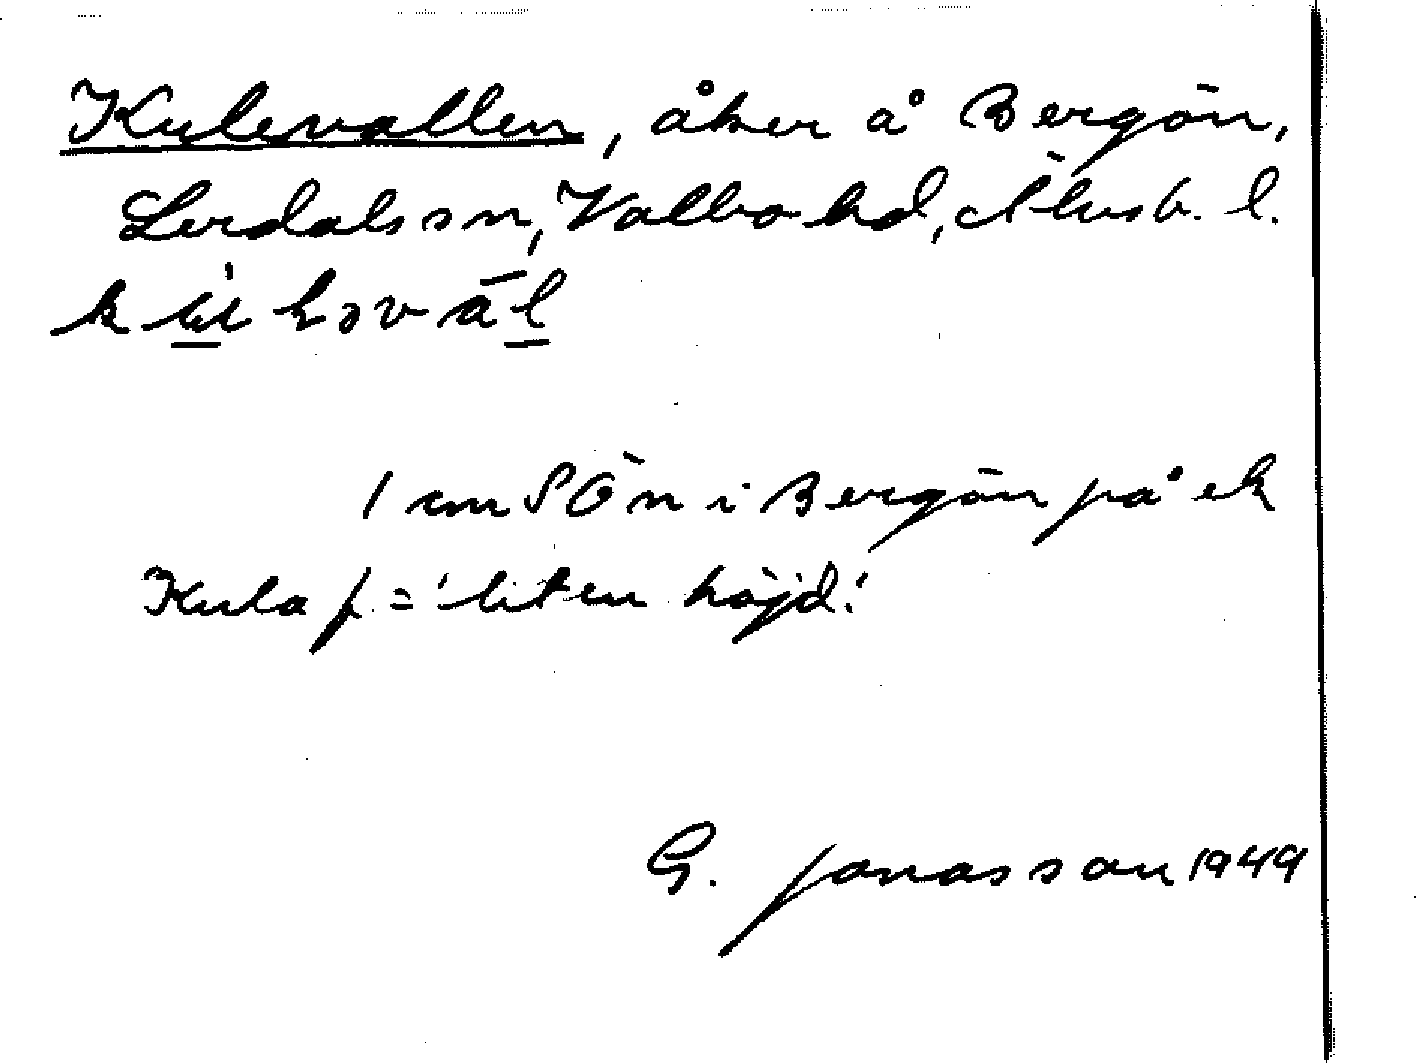 Kulevallen, åker å Bergön,
Lerdals sn, Valbo hd, Älvsb. l.
1 cm SÖ n i Bergön på ek
Kula f. = 'liten höjd.'
G. Jonasson 1949